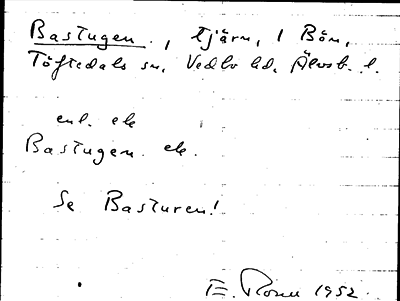 Bastugen, tjärn, i Bön,
Töftedals sn, Vedbo hd, Älvsb. l.
enl. ek
Bastugen ek.
Se Basturen!
E. 1952